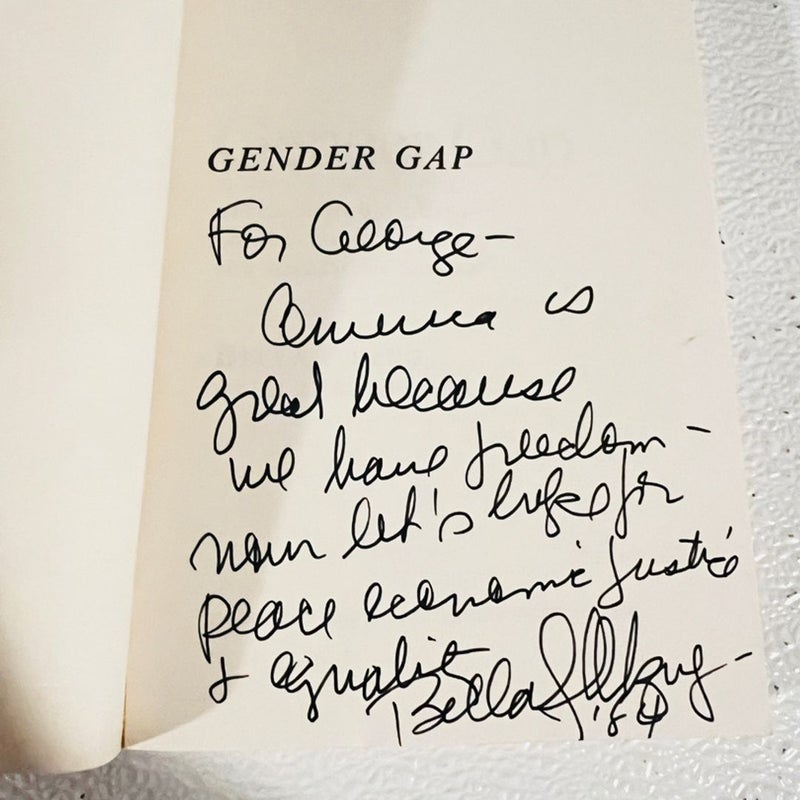 GENDER GAP
For George-
America is
great because
we have freedom -
now let's hope for
peace economic justice
& equality
Bella S Abzug-
'84